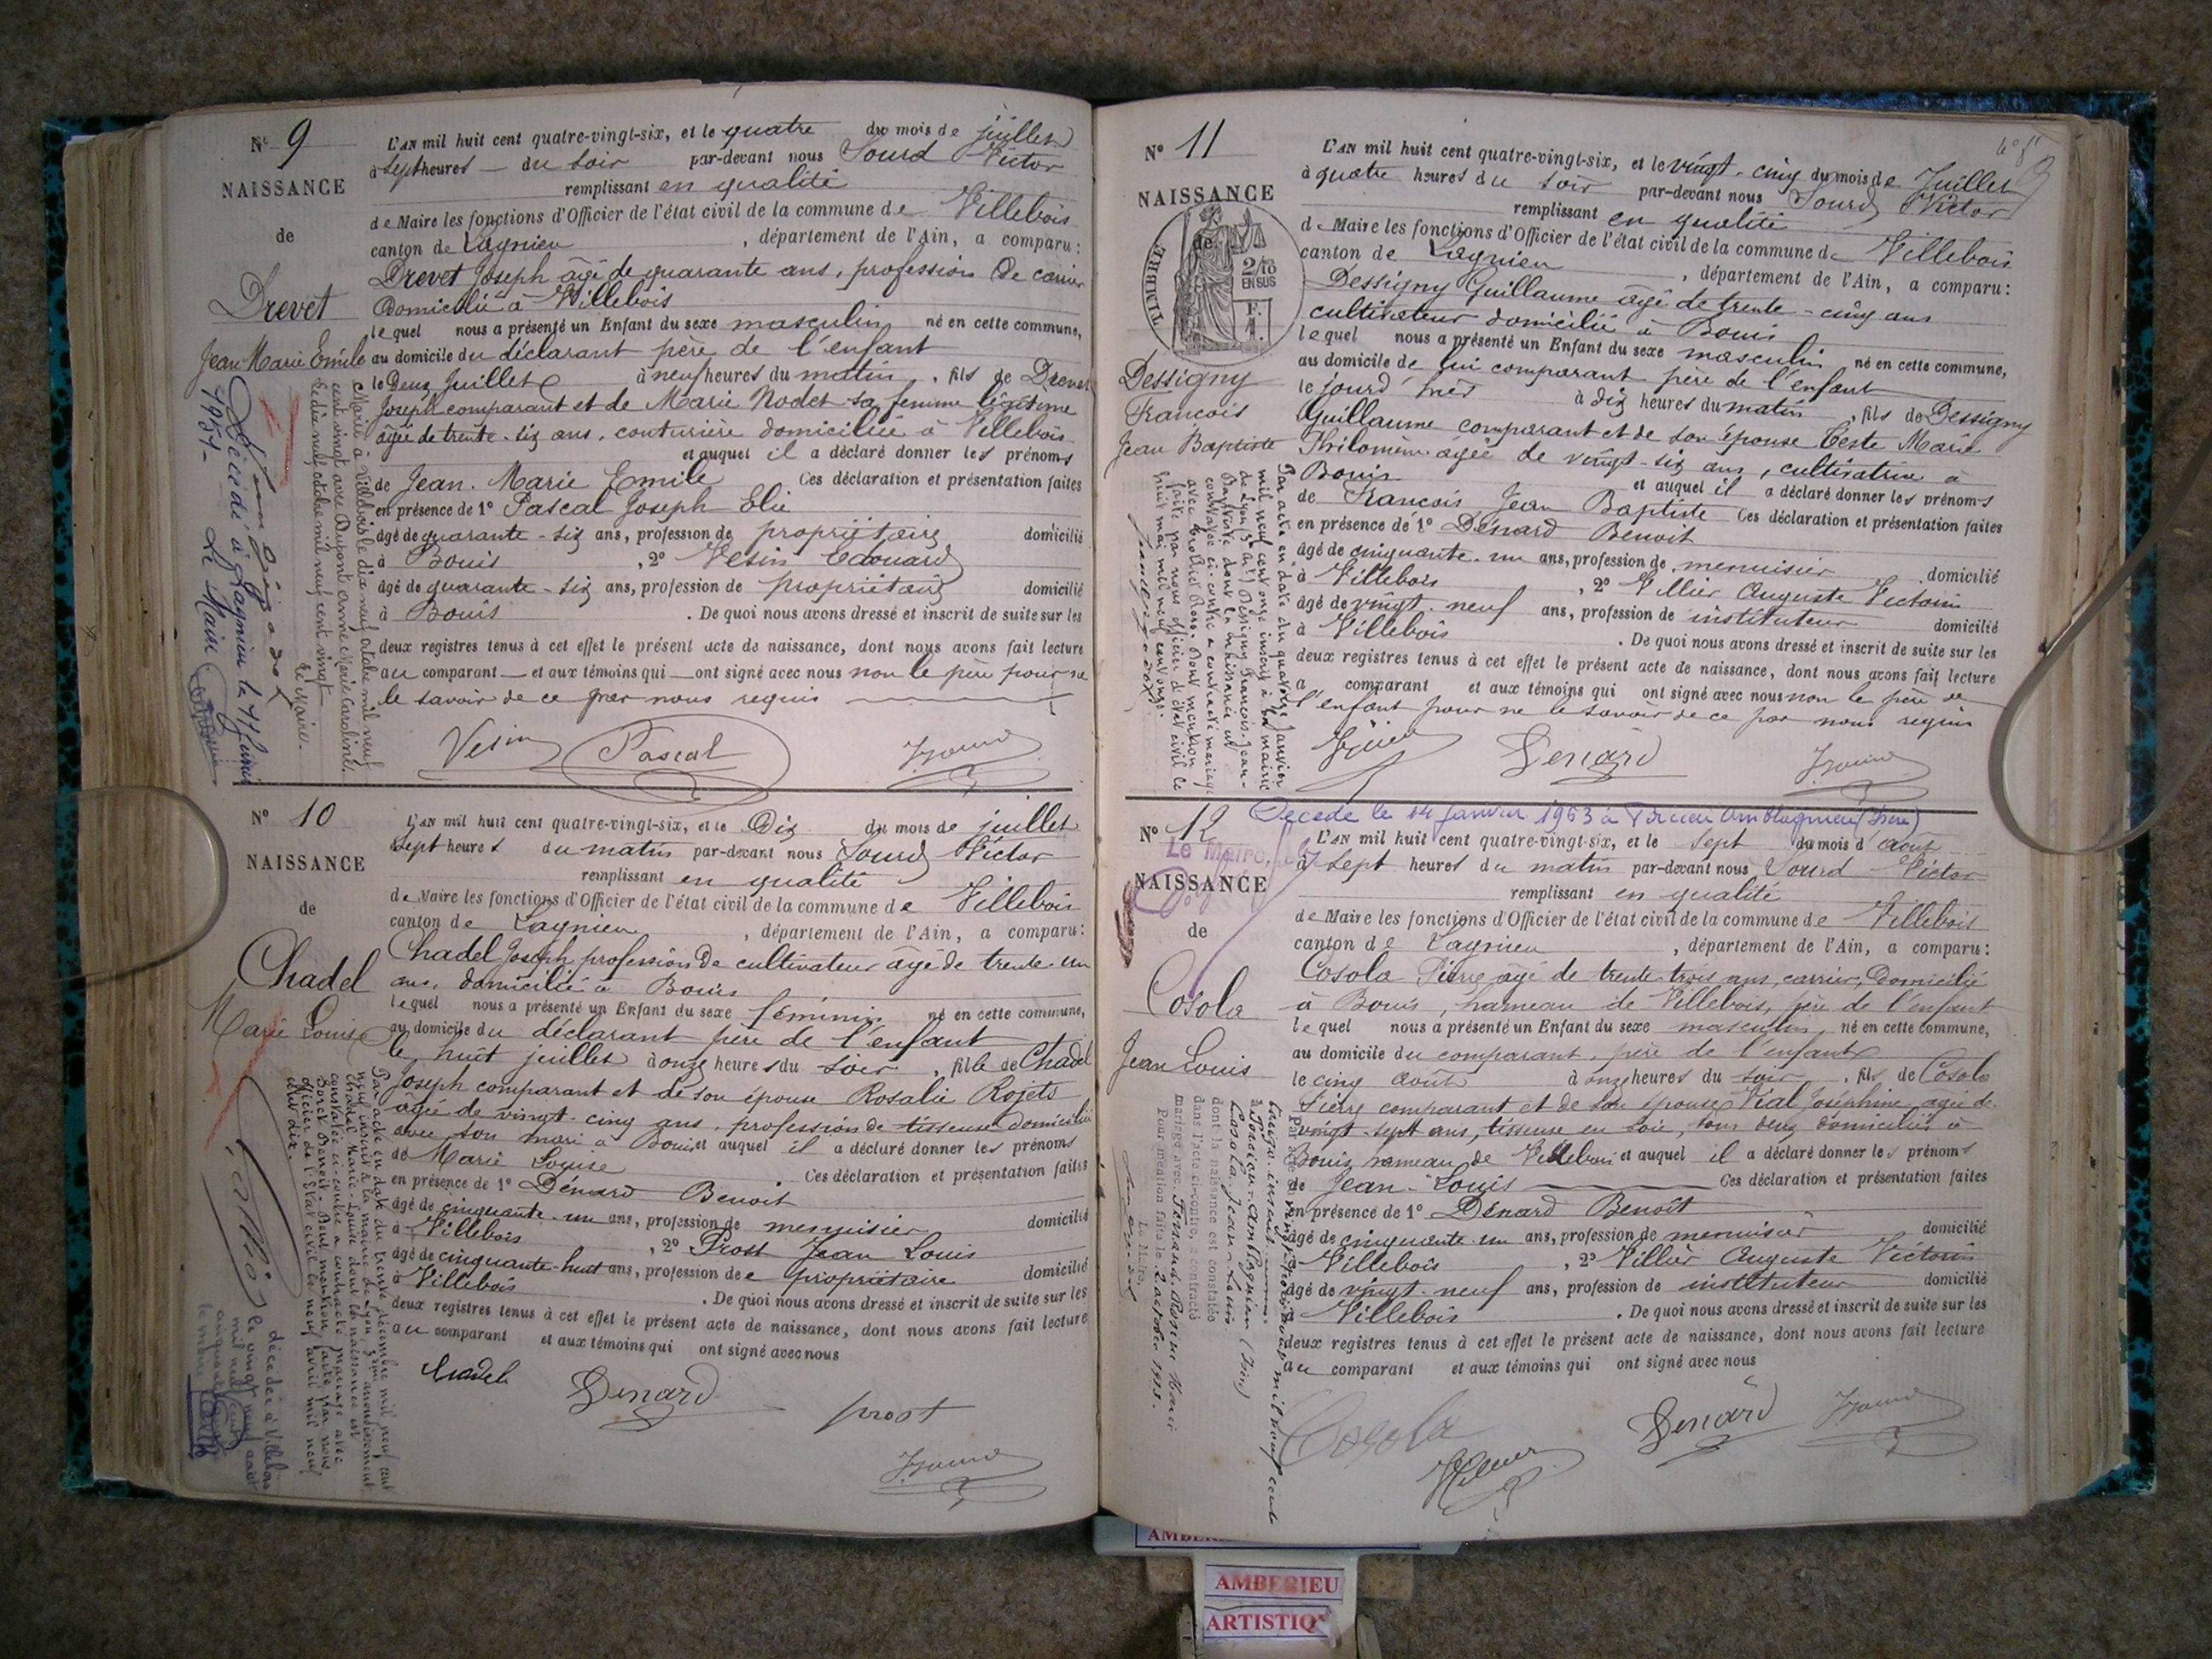 N° 9
NAISSANCE
de
Drevet
Jean Marie Emile
L'AN mil huit cent quatre-vingt-six, et le quatre du mois de juillet
à sept heures du soir par-devant nous Sourd Victor
remplissant en qualité
de Maire les fonctions d'Officier de l'état civil de la commune de Villebois
canton de Lagnieu, département de l'Ain, a comparu:
Drevet Joseph âgé de quarante ans, profession de carrier
Domicilié à Villebois
lequel nous a présenté un Enfant du sexe masculin né en cette commune,
au domicile du déclarant père de l'enfant
le Deux Juillet à neuf heures du matin, fils de Drevet
Joseph comparant et de Marie Nodet sa femme légitime
âgée de trente-six ans, couturière domiciliée à Villebois
et auquel il a déclaré donner les prénoms
de Jean. Marie Emile Ces déclaration et présentation faites
en présence de 1° Pascal Joseph Elie
âgé de quarante-six ans, profession de propriétaire domicilié
à Bouis, 2° Vesin Edouard
âgé de quarante-six ans, profession de propriétaire domicilié
à Bouis. De quoi nous avons dressé et inscrit de suite sur les
deux registres tenus à cet effet le présent acte de naissance, dont nous avons fait lecture
au comparant et aux témoins qui ont signé avec nous non le père pour ne
le savoir de ce par nous requis
Vesin Pascal
Marié à Villebois le dix neuf octobre mil neuf
cent vingt avec Dupont Anne Marie Caroline.
Le dix neuf octobre mil neuf cent vingt
Le Maire.
Décédé à Lagnieu le
1951- Le Maire
N° 10
NAISSANCE
de
Chadel
Marie Louise
L'AN mil huit cent quatre-vingt-six, et le Dix du mois de juillet
sept heures du matin par-devant nous Sourd Victor
remplissant en qualité
de Maire les fonctions d'Officier de l'état civil de la commune de Villebois
canton de Lagnieu, département de l'Ain, a comparu:
Chadel Joseph profession de cultivateur âgé de trente un
ans, domicilié à Bouis
lequel nous a présenté un Enfant du sexe féminin né en cette commune,
au domicile du déclarant père de l'enfant
le huit juillet à onze heures du soir, fille de Chadel
Joseph comparant et de son épouse Rosalie Rojets
âgée de vingt-cinq ans, profession de tisseuse domiciliée
avec son mari à Bouis et auquel il a déclaré donner les prénoms
de Marie Louise Ces déclaration et présentation faites
en présence de 1° Dénard Benoit
âgé de cinquante-un ans, profession de menuisier domicilié
à Villebois, 2° Prost Jean Louis
âgé de cinquante-huit ans, profession de propriétaire domicilié
à Villebois. De quoi nous avons dressé et inscrit de suite sur les
deux registres tenus à cet effet le présent acte de naissance, dont nous avons fait lecture
au comparant et aux témoins qui ont signé avec nous
Chadel Denard prost
Par acte en date du trente décembre mil neuf cent
neuf inscrit à la mairie de Lyon
Chadel Marie-Louise dont la naissance est
constatée ci-contre a contracté mariage avec
Benoit. Dont mention faite par nous
officier de l'Etat civil le neuf avril mil neuf
cent dix.
décédée à Villebois
le vingt neuf août
mil neuf cent
le maire
N° 11
NAISSANCE
de
TIMBRE
2/10
EN SUS
F.
1.
Dessigny
François
Jean Baptiste
L'AN mil huit cent quatre-vingt-six, et le vingt-cinq du mois de Juillet
à quatre heures du soir par-devant nous Sourd Victor
remplissant en qualité
de Maire les fonctions d'Officier de l'état civil de la commune de Villebois
canton de Lagnieu, département de l'Ain, a comparu:
Dessigny Guillaume âgé de trente-cinq ans
cultivateur domicilié à Bouis
lequel nous a présenté un Enfant du sexe masculin né en cette commune,
au domicile de lui comparant père de l'enfant
le jourd'hier à dix heures du matin, fils de Dessigny
Guillaume comparant et de son épouse Teste Marie
Philomène âgée de vingt-six ans, cultivatrice à
Bouis et auquel il a déclaré donner les prénoms
de François Jean Baptiste Ces déclaration et présentation faites
en présence de 1° Dénard Benoit
âgé de cinquante-un ans, profession de menuisier domicilié
à Villebois, 2° Villier Auguste Victorin
âgé de vingt-neuf ans, profession de instituteur domicilié
à Villebois. De quoi nous avons dressé et inscrit de suite sur les
deux registres tenus à cet effet le présent acte de naissance, dont nous avons fait lecture
a comparant et aux témoins qui ont signé avec nous non le père de
l'enfant pour ne le savoir de ce par nous requis
Denard
Par acte en date du quatorze janvier
mil neuf cent onze inscrit à la mairie
de Lyon Dessigny François-Jean-
Baptiste dont la naissance est
constatée ci-contre a contracté mariage
avec Dont mention
faite par nous officier d'état civil ce
huit mai mil neuf cent onze.
N° 12
Décédé le 14 janvier 1963 à Porcieu Amblagnieu (Isère)
Le Maire,
NAISSANCE
de
Cosola
Jean Louis
L'AN mil huit cent quatre-vingt-six, et le sept du mois d'août
à sept heures du matin par-devant nous Sourd Victor
remplissant en qualité
de Maire les fonctions d'Officier de l'état civil de la commune de Villebois
canton de Lagnieu, département de l'Ain, a comparu:
Cosola Pierre âgé de trente-trois ans, carrier, Domicilié
à Bouis, hameau de Villebois, père de l'enfant
lequel nous a présenté un Enfant du sexe masculin, né en cette commune,
au domicile du comparant, père de l'enfant
le cinq août à onze heures du soir, fils de Cosola
Pierre comparant et de son épouse Vial Joséphine agée de
vingt-sept ans, tisseuse en soie, tous deux domiciliés à
Bouis hameau de Villebois et auquel il a déclaré donner les prénoms
de Jean-Louis Ces déclaration et présentation faites
en présence de 1° Dénard Benoît
âgé de cinquante-un ans, profession de menuisier domicilié
à Villebois, 2° Villier Auguste Victorin
âgé de vingt-neuf ans, profession de instituteur domicilié
à Villebois. De quoi nous avons dressé et inscrit de suite sur les
deux registres tenus à cet effet le présent acte de naissance, dont nous avons fait lecture
au comparant et aux témoins qui ont signé avec nous
Cosola Denard
Par acte mil neuf cent
inscrit
à Porcieu-Amblagnieu (Isère)
Cosola Jean-Louis
dont la naissance est constatée
dans l'acte ci-contre, a contracté
mariage avec
Pour mention faite le 2 octobre
Le Maire,
AMBERIEU
ARTISTIQ